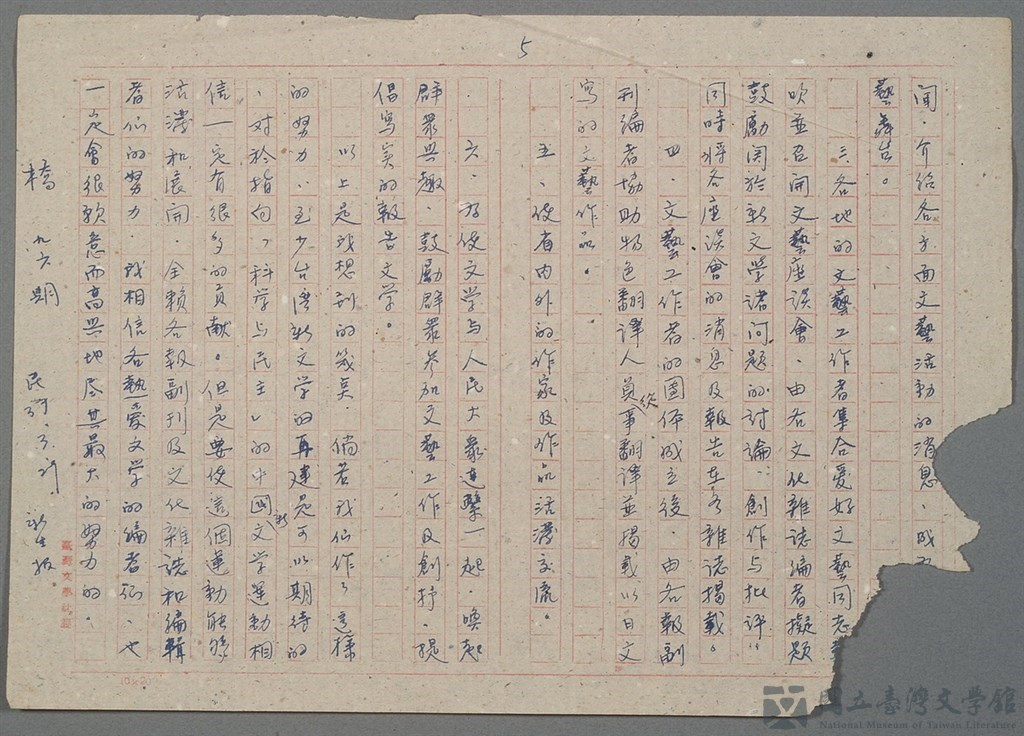 5
聞、介紹各方面文藝活動的消息、成
藝舞台。
三、各地的文藝工作者集合愛好文藝同志
吹並召開文藝座談會、由各文化雜誌編者擬題
鼓勵関於新文学諸问题的討論、創作与批評、
同時將各座談會的消息及報告在各雜誌揭載。
四、文藝工作者的團体成立後、由各報副
刊編者協助物色翻譯人員從事翻譯並揭載以日文
寫的文藝作品。
五、使省内外的作家及作品活潑交流。
六、為使文学与人民大衆連繫一起、喚起
群衆興趣、鼓勵群衆参加文藝工作及創抒、提
倡寫实的報告文学。
以上是我想到的幾矣、倘若我们作了這樣
的努力、至少台湾新文学的再建是可以期待的
、对於指向「科学与民主」的中國新文学運動相
信一定有很多的貢献。但是要使這個運動能够
活潑和展開、全賴各報副刊及文化雜誌和編輯
者们的努力、我相信各熱愛文学的編者们、也
一定會很願意而高興地尽其最大的努力的。
橋 九六期 民 3. 新生报
10×20
國立臺灣文學館
National Museum of Taiwan Literature